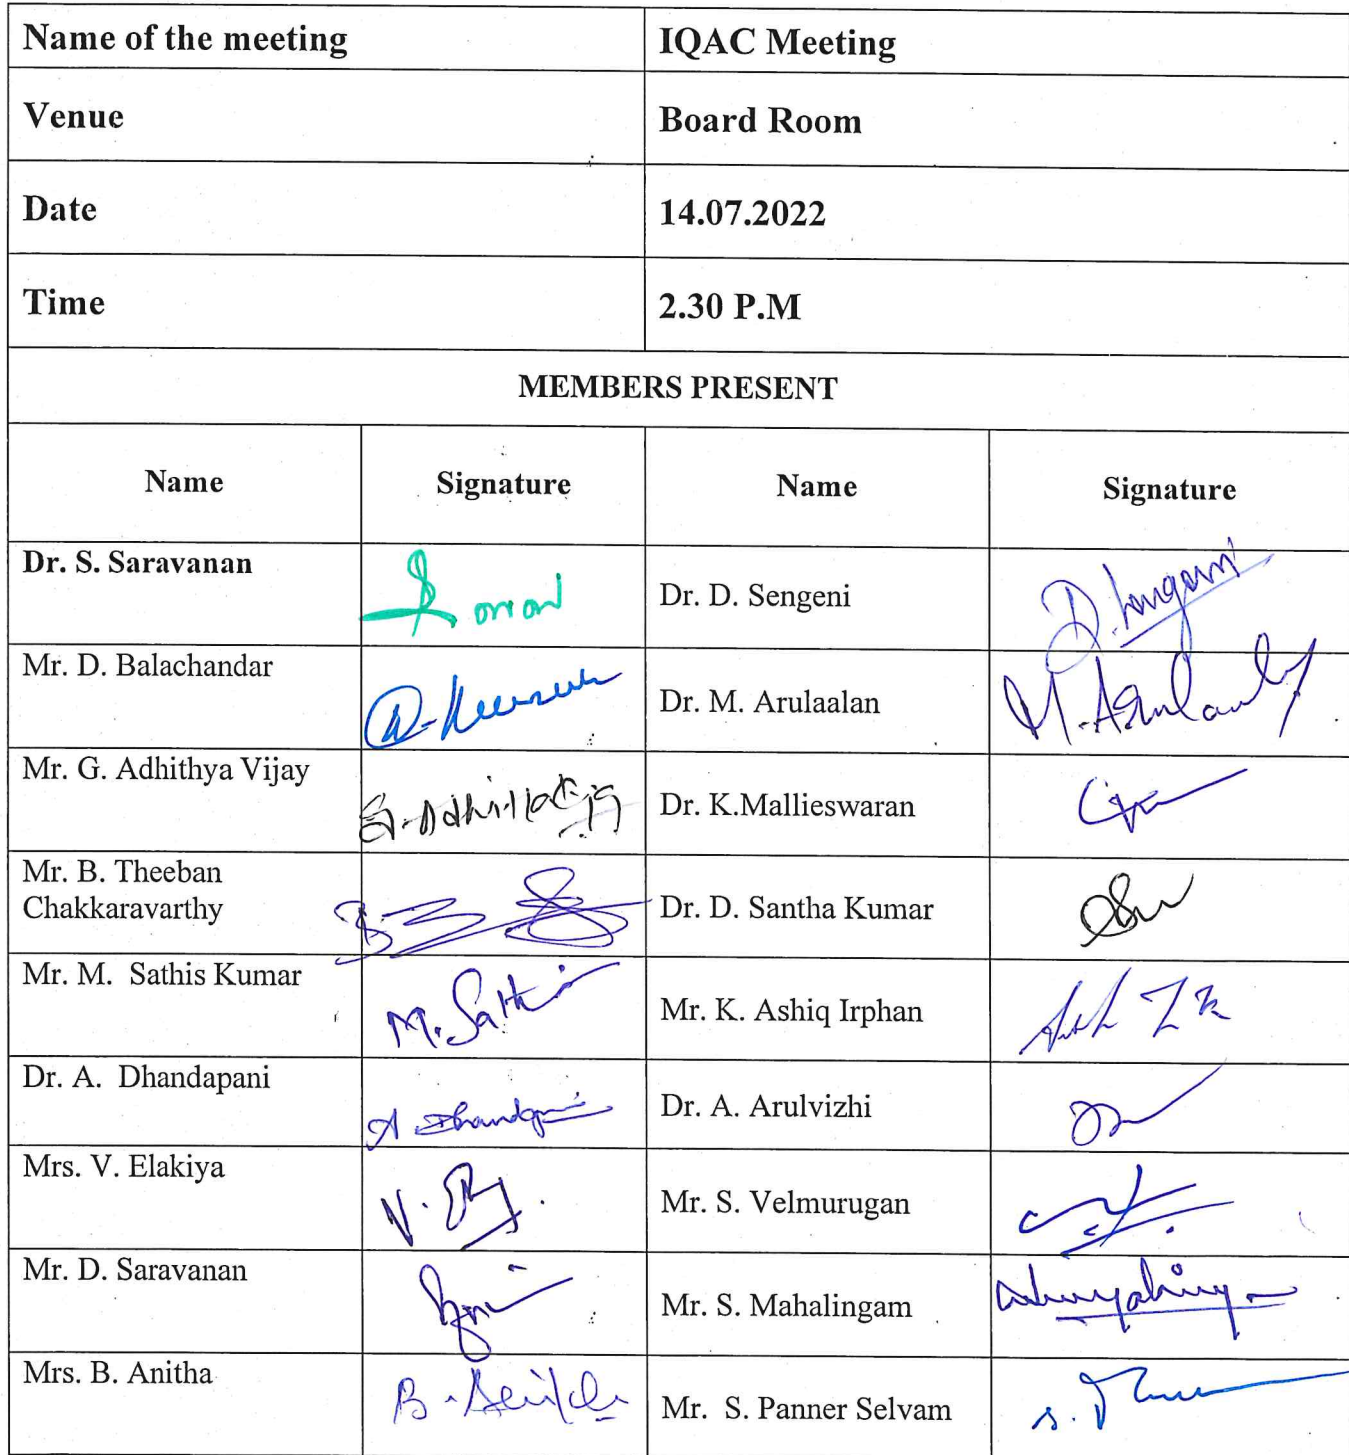 Name of the meeting IQAC Meeting
Venue Board Room
Date 14.07.2022
Time 2.30 P.M
MEMBERS PRESENT
Name Signature Name Signature
Dr. S. Saravanan Dr. D. Sengeni
Mr. D. Balachandar Dr. M. Arulaalan
Mr. G. Adhithya Vijay Dr. K.Mallieswaran
Mr. B. Theeban
Chakkaravarthy Dr. D. Santha Kumar
Mr. M. Sathis Kumar M. Sathi Mr. K. Ashiq Irphan
Dr. A. Dhandapani Dr. A. Arulvizhi
Mrs. V. Elakiya Mr. S. Velmurugan
Mr. D. Saravanan Mr. S. Mahalingam
Mrs. B. Anitha Mr. S. Panner Selvam